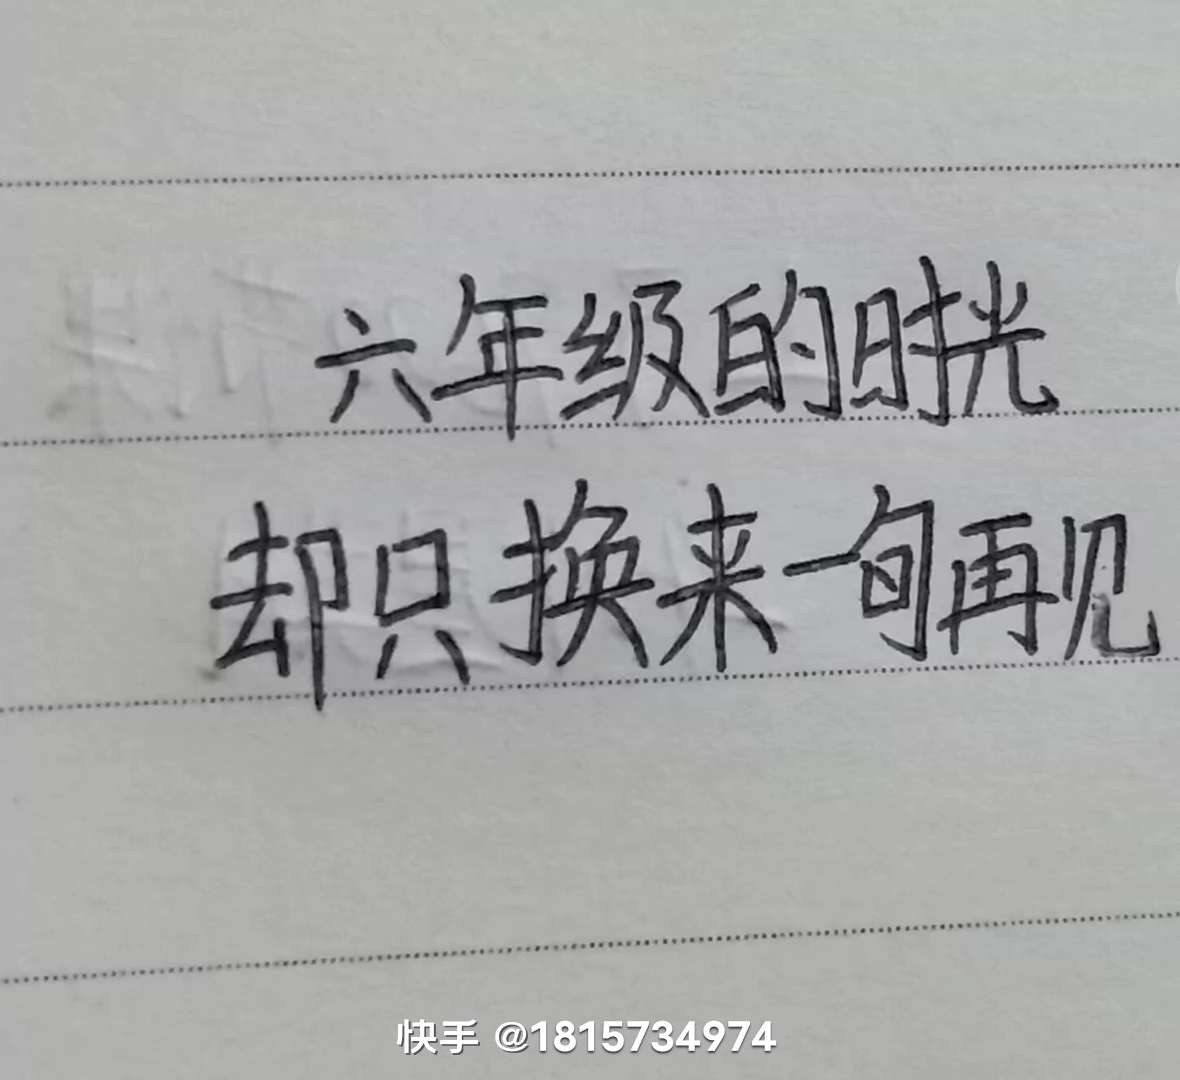 六年级的时光
却只换来一句再见
快手 @1815734974